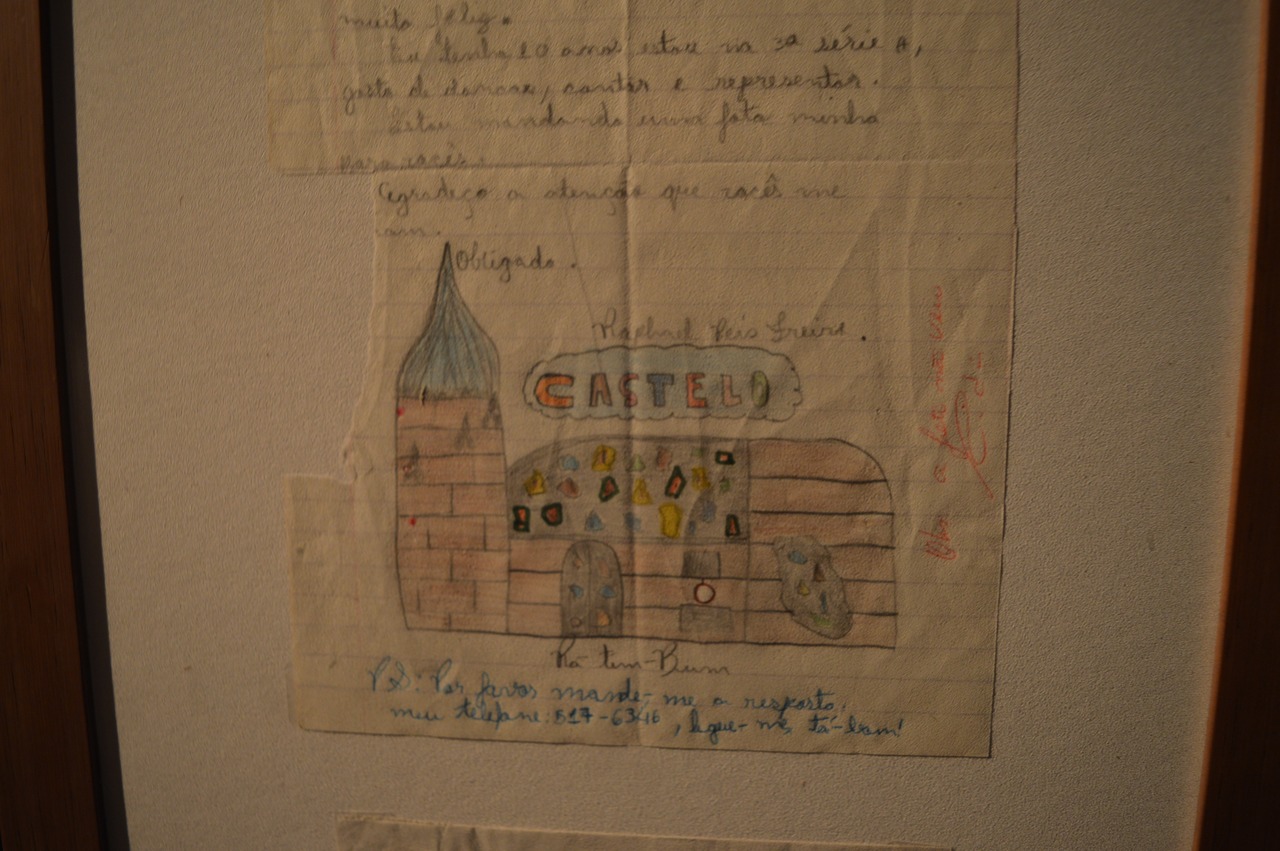 muito feliz.
Eu tenho 10 anos estou na 3ª série A,
gosto de dançar, cantar e representar.
Estou mandando uma foto minha
para vocês.
Agradeço a atenção que vocês me
Obrigado.
Raphael Reis Freire.
CASTELO
Rá-tim-Bum
PS: Por favor mande-me a resposta,
meu telefone: 517-6346, ligue-me, tá-bom!
Obs: a foto não veio